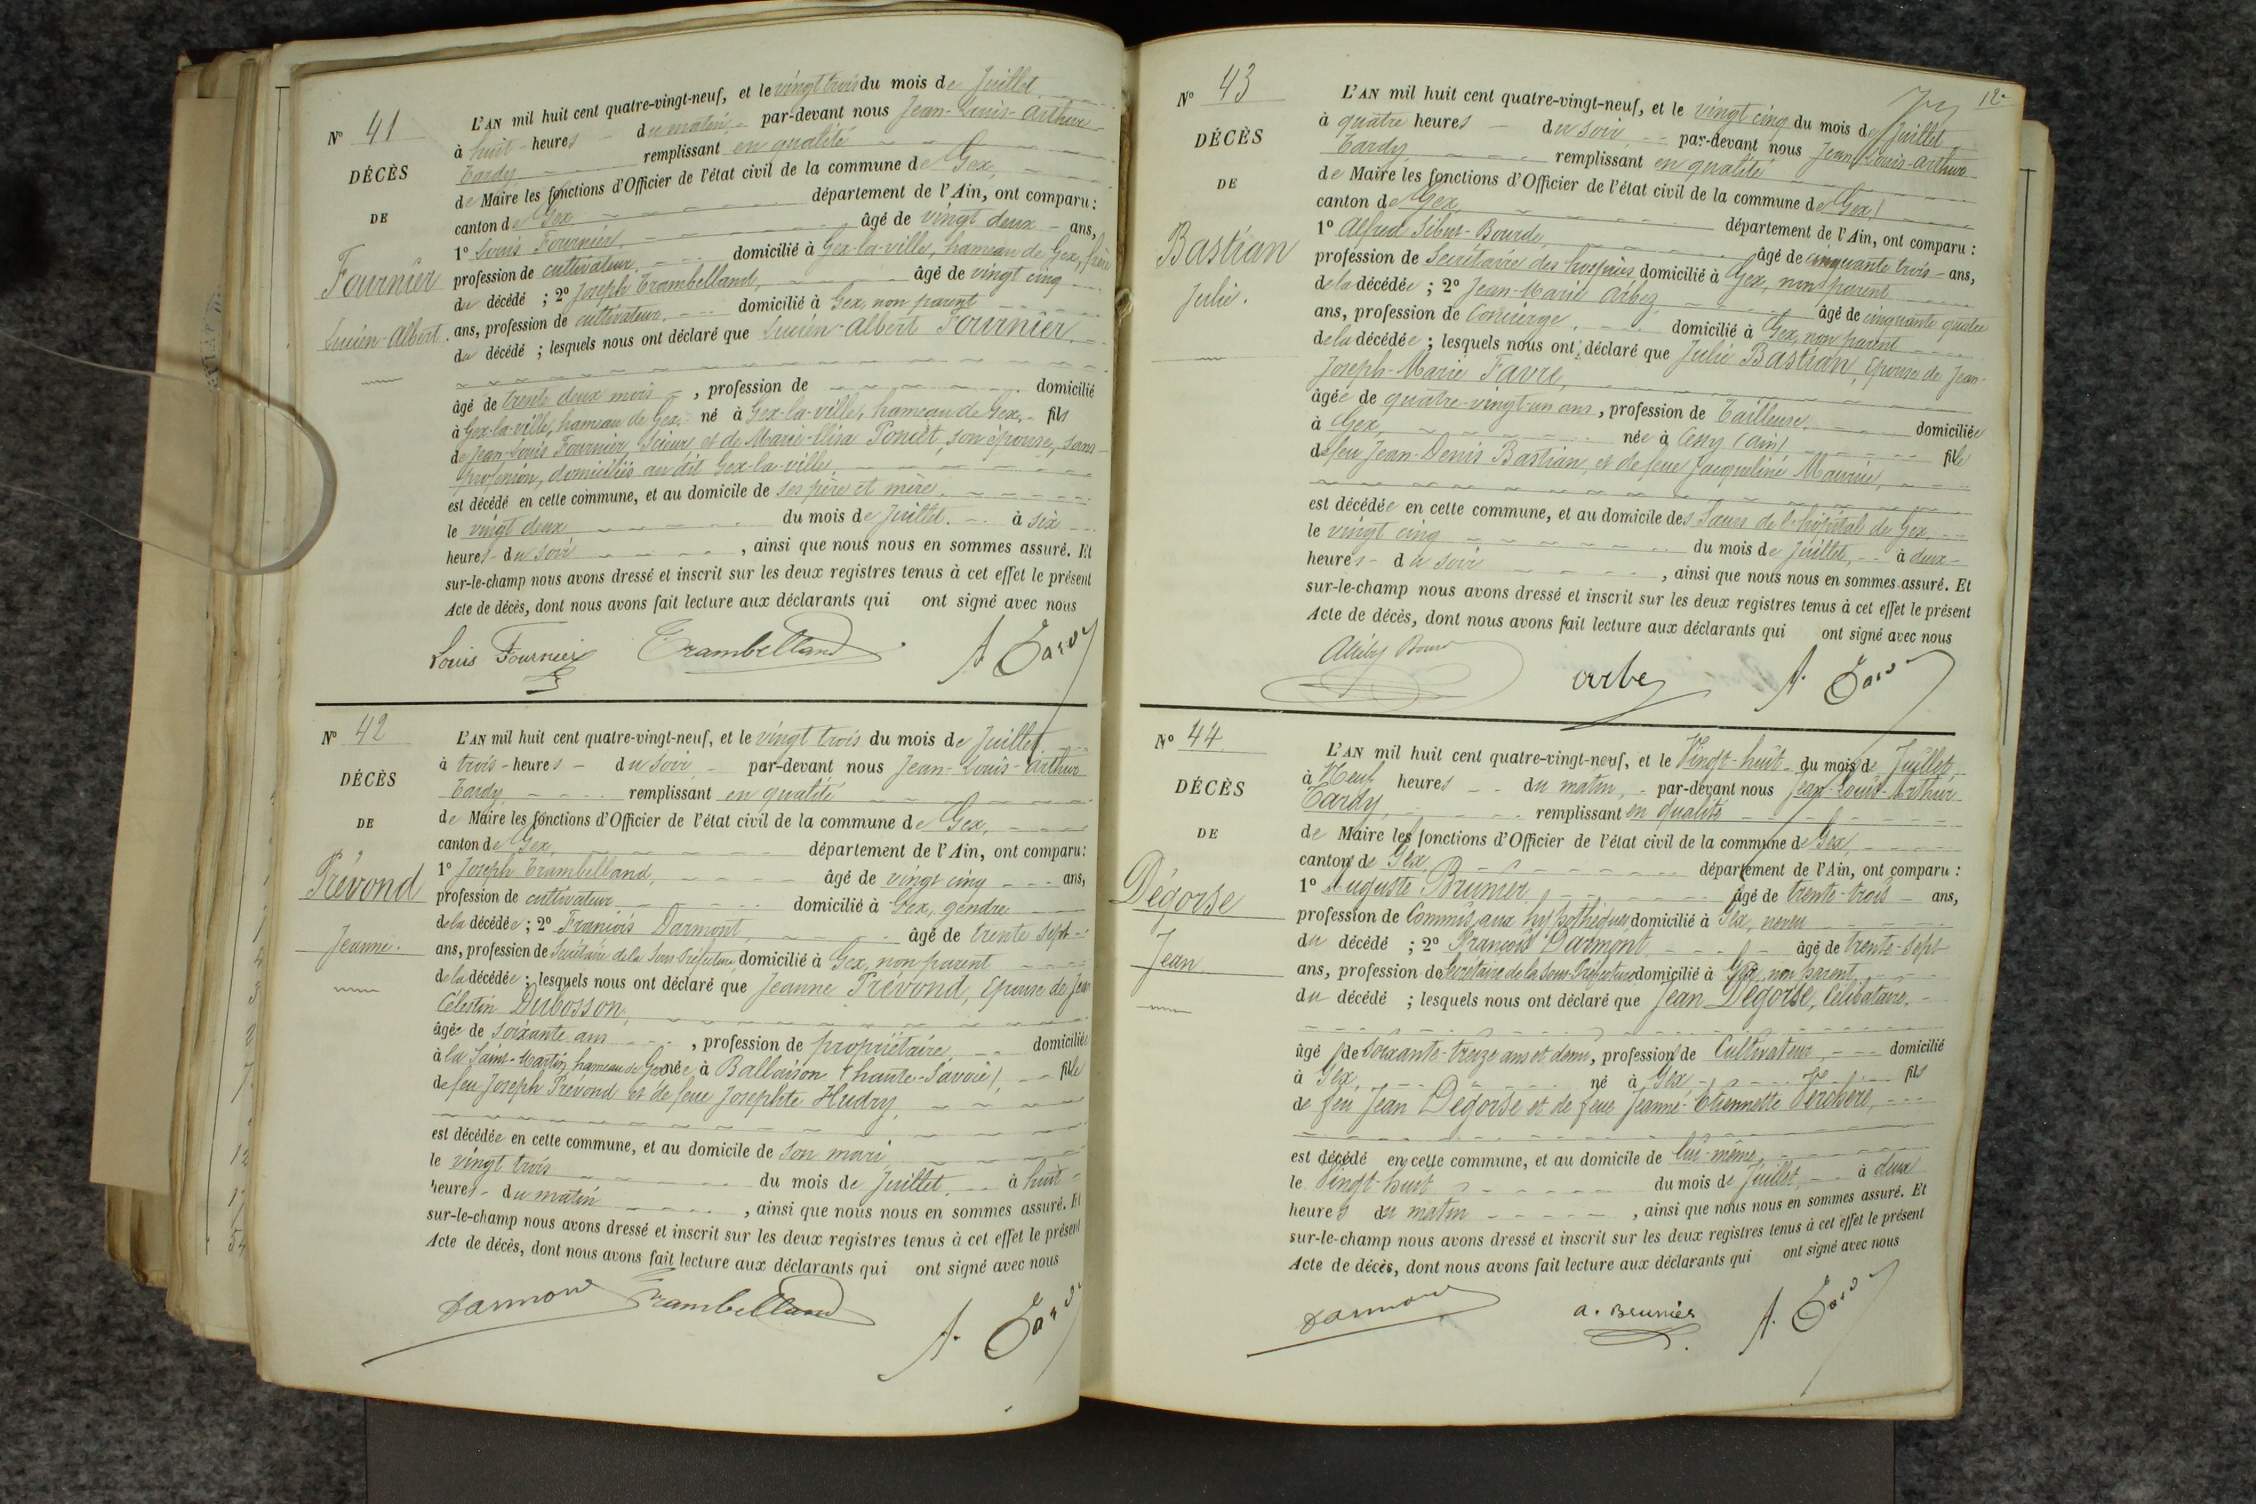 N° 41
DÉCÈS
DE
Fournier
Lucien-Albert.
L'AN mil huit cent quatre-vingt-neuf, et le vingt trois du mois de Juillet
à huit heures du matin, par-devant nous Jean-Louis-Arthur
Tardy remplissant en qualité
de Maire les fonctions d'Officier de l'état civil de la commune de Gex,
canton de Gex département de l'Ain, ont comparu :
1° Louis Fournier, âgé de vingt deux ans,
profession de cultivateur, domicilié à Gex-la-ville, hameau de Gex, frère
du décédé ; 2° Joseph Trambelland, âgé de vingt cinq
ans, profession de cultivateur, domicilié à Gex, non parent
du décédé ; lesquels nous ont déclaré que Lucien-Albert Fournier,
âgé de trente deux mois, profession de domicilié
à Gex-la-ville, hameau de Gex, né à Gex-la-ville, hameau de Gex, fils
de Jean-Louis Fournier, Scieur et de Marie-Elisa Poncet, son épouse, sans
profession, domiciliés au dit Gex-la-ville,
est décédé en cette commune, et au domicile de ses père et mère,
le vingt deux du mois de Juillet, à six
heures du soir, ainsi que nous nous en sommes assuré. Et
sur-le-champ nous avons dressé et inscrit sur les deux registres tenus à cet effet le présent
Acte de décès, dont nous avons fait lecture aux déclarants qui ont signé avec nous
Louis Fournier Trambelland A. Tardy
N° 42
DÉCÈS
DE
Prévond
Jeanne.
L'AN mil huit cent quatre-vingt-neuf, et le vingt trois du mois de Juillet
à trois heures du soir, par-devant nous Jean-Louis-Arthur
Tardy remplissant en qualité
de Maire les fonctions d'Officier de l'état civil de la commune de Gex,
canton de Gex, département de l'Ain, ont comparu :
1° Joseph Trambelland, âgé de vingt cinq ans,
profession de cultivateur domicilié à Gex, gendre
de la décédée ; 2° François Darmont, âgé de trente sept
ans, profession de Secrétaire de la Sous Préfecture, domicilié à Gex, non parent
de la décédée ; lesquels nous ont déclaré que Jeanne Prévond, Epouse de Jean
Célestin Dubosson,
âgée de soixante ans, profession de propriétaire, domiciliée
à la Saint-Martin, hameau de Gex née à Ballaison (haute-Savoie), fille
de feu Joseph Prévond et de feue Josephte Hudry,
est décédée en cette commune, et au domicile de son mari
le vingt trois du mois de Juillet, à huit
heures du matin, ainsi que nous nous en sommes assuré. Et
sur-le-champ nous avons dressé et inscrit sur les deux registres tenus à cet effet le présent
Acte de décès, dont nous avons fait lecture aux déclarants qui ont signé avec nous
Darmont Trambelland A. Tardy
12
N° 43
DÉCÈS
DE
Bastian
Julie.
L'AN mil huit cent quatre-vingt-neuf, et le vingt cinq du mois de Juillet
à quatre heures du soir par-devant nous Jean-Louis-Arthur
Tardy remplissant en qualité
de Maire les fonctions d'Officier de l'état civil de la commune de Gex,
canton de Gex département de l'Ain, ont comparu :
1° Alfred Sibut-Bourde, âgé de cinquante trois ans,
profession de Secrétaire des hospices domicilié à Gex, non parent
de la décédée ; 2° Jean-Marie Arbez, âgé de cinquante quatre
ans, profession de Concierge, domicilié à Gex, non parent
de la décédée ; lesquels nous ont déclaré que Julie Bastian, Epouse de Jean-
Joseph-Marie Favre,
âgée de quatre-vingt-un ans, profession de Tailleuse, domiciliée
à Gex, née à Cessy (Ain) fille
de feu Jean-Denis Bastian, et de feue Jacqueline Maurier,
est décédée en cette commune, et au domicile des Sœurs de l'hôpital de Gex
le vingt cinq du mois de Juillet, à deux
heures du soir, ainsi que nous nous en sommes assuré. Et
sur-le-champ nous avons dressé et inscrit sur les deux registres tenus à cet effet le présent
Acte de décès, dont nous avons fait lecture aux déclarants qui ont signé avec nous
Arbez A. Tardy
N° 44
DÉCÈS
DE
Dégorse
Jean
L'AN mil huit cent quatre-vingt-neuf, et le Vingt-huit du mois de Juillet
à Neuf heures du matin, par-devant nous Jean-Louis-Arthur
Tardy, remplissant en qualité
de Maire les fonctions d'Officier de l'état civil de la commune de Gex
canton de Gex département de l'Ain, ont comparu :
1° Auguste Brunier, âgé de trente-trois ans,
profession de Commis aux hypothèques domicilié à Gex, neveu
du décédé ; 2° François Darmont, âgé de trente-sept
ans, profession de Secrétaire de la Sous-Préfecture domicilié à Gex, non parent,
du décédé ; lesquels nous ont déclaré que Jean Dégorse, Célibataire,
âgé de Soixante-treize ans et demi, profession de Cultivateur, domicilié
à Gex, né à Gex fils
de feu Jean Dégorse et de feue Jeanne-Etiennette Verchère,
est décédé en cette commune, et au domicile de lui-même,
le Vingt-huit du mois de Juillet, à deux
heures du matin, ainsi que nous nous en sommes assuré. Et
sur-le-champ nous avons dressé et inscrit sur les deux registres tenus à cet effet le présent
Acte de décès, dont nous avons fait lecture aux déclarants qui ont signé avec nous
Darmont A. Brunier A. Tardy